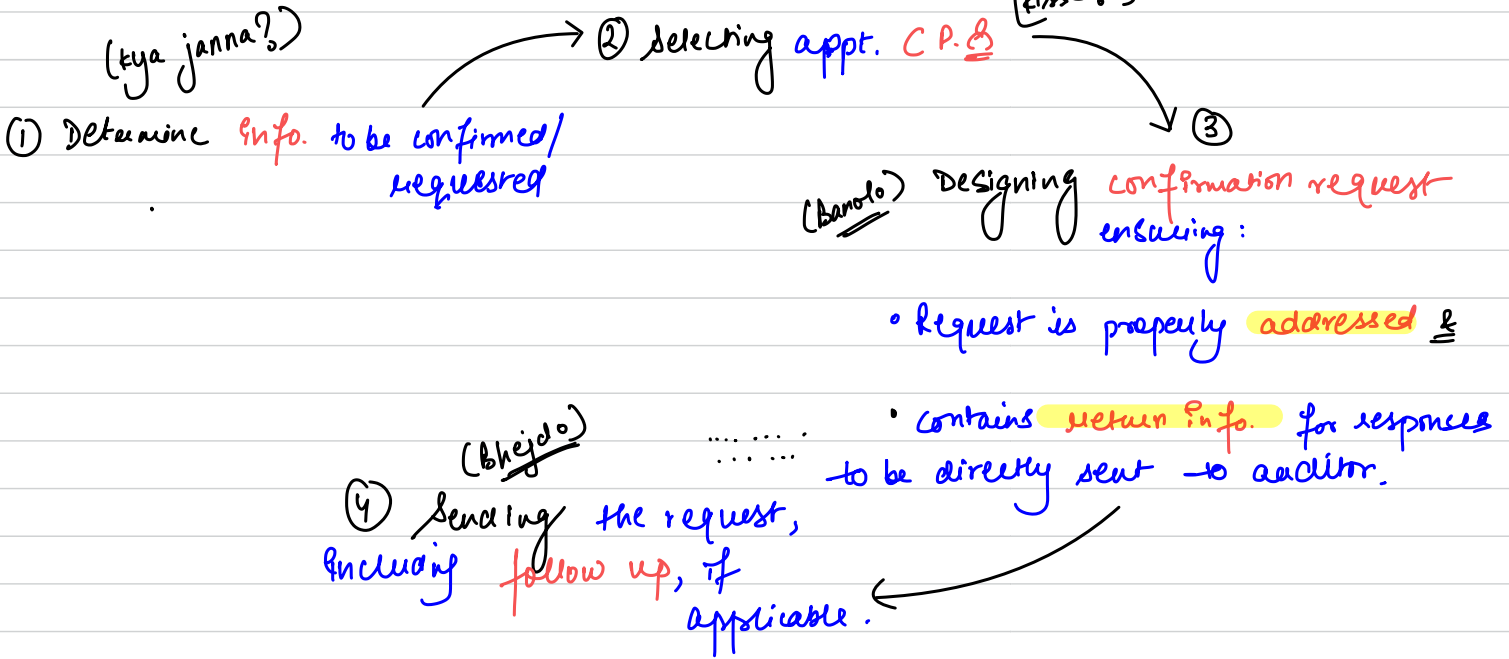 (kya janna?)
① Determine info. to be confirmed/
requested
② Selecting appt. C P. &
③
(Banalo) Designing confirmation request
ensuring :
• Request is properly addressed &
• contains return info. for responses
to be directly sent to auditor.
(Bhejdo)
④ Sending the request,
including follow up, if
applicable.